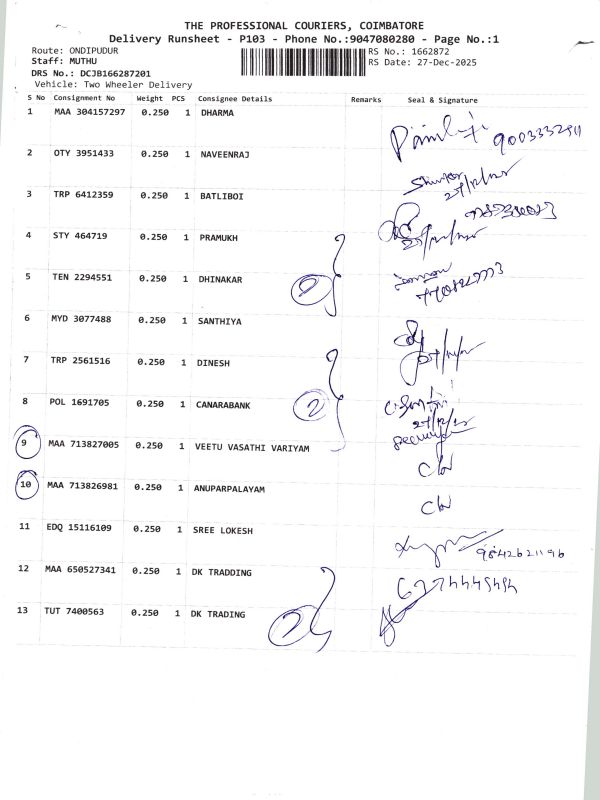 THE PROFESSIONAL COURIERS, COIMBATORE
Delivery Runsheet - P103 - Phone No.:9047080280 - Page No.:1
Route: ONDIPUDUR RS No.: 1662872
Staff: MUTHU RS Date: 27-Dec-2025
DRS No.: DCJB166287201
Vehicle: Two Wheeler Delivery
S No Consignment No Weight PCS Consignee Details Remarks Seal & Signature
1 MAA 304157297 0.250 1 DHARMA 9003332911
2 OTY 3951433 0.250 1 NAVEENRAJ 27/12/25
3 TRP 6412359 0.250 1 BATLIBOI
4 STY 464719 0.250 1 PRAMUKH 27/12/25
5 TEN 2294551 0.250 1 DHINAKAR 2
6 MYD 3077488 0.250 1 SANTHIYA
7 TRP 2561516 0.250 1 DINESH 27/12/25
8 POL 1691705 0.250 1 CANARABANK 2
27/12/25
9 MAA 713827005 0.250 1 VEETU VASATHI VARIYAM
10 MAA 713826981 0.250 1 ANUPARPALAYAM
11 EDQ 15116109 0.250 1 SREE LOKESH 9842621196
12 MAA 650527341 0.250 1 DK TRADDING
13 TUT 7400563 0.250 1 DK TRADING 2